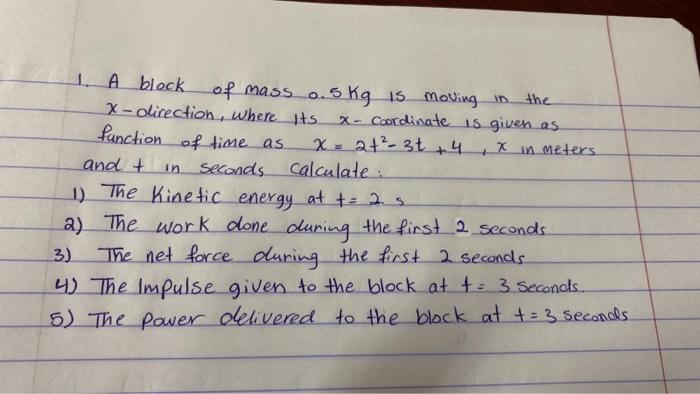 1. A block of mass 0.5 Kg is moving in the
x-direction, where its x-coordinate is given as
function of time as x = 2t²-3t+4, x in meters
and t in seconds calculate:
1) The Kinetic energy at t= 2 s
2) The work done during the first 2 seconds
3) The net force during the first 2 seconds
4) The Impulse given to the block at t= 3 seconds.
5) The power delivered to the block at t=3 seconds